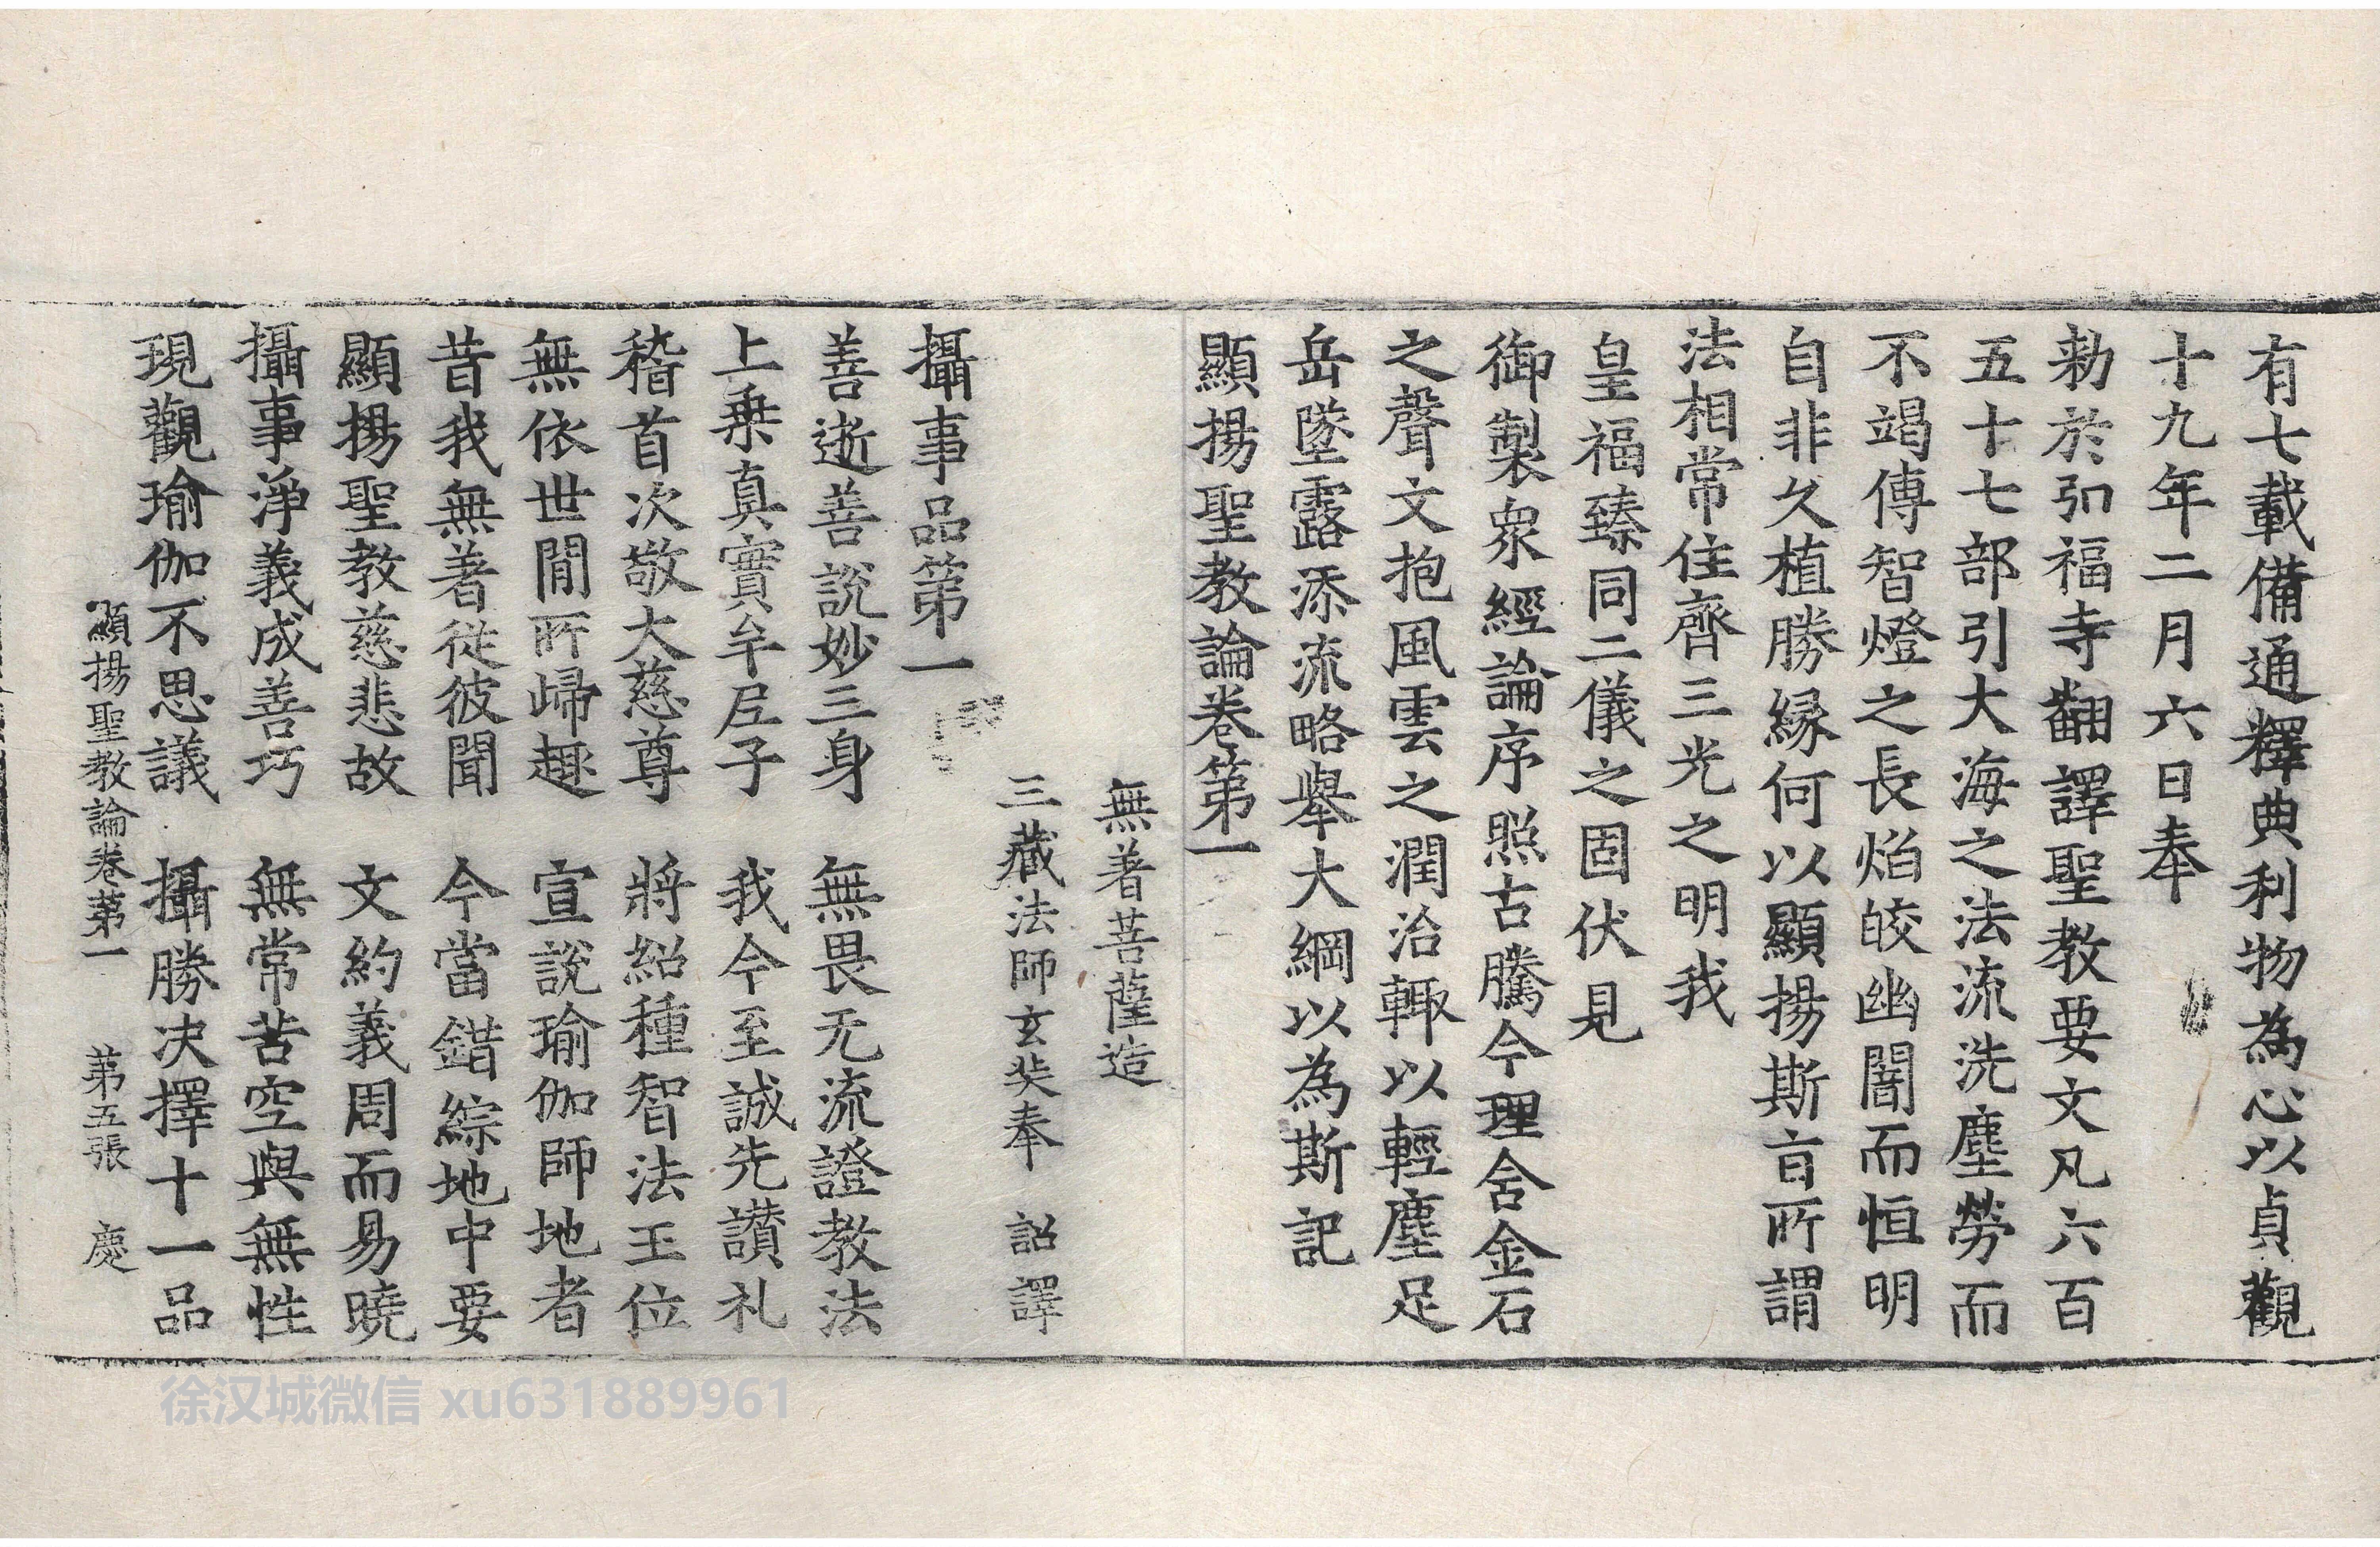 有七載備通釋典利物為心以貞觀
十九年二月六日奉
勑於弘福寺翻譯聖教要文凡六百
五十七部引大海之法流洗塵勞而
不竭傳智燈之長焰皎幽闇而恒明
自非久植勝緣何以顯揚斯旨所謂
法相常住齊三光之明我
皇福臻同二儀之固伏見
御製衆經論序照古騰今理含金石
之聲文抱風雲之潤治輙以輕塵足
岳墜露添流略舉大綱以為斯記
顯揚聖教論卷第一
無著菩薩造
三藏法師玄奘奉 詔譯
攝事品第一
善逝善說妙三身 無畏无流證教法
上乗真實牟尼子 我今至誠先讃礼
稽首次敬大慈尊 將紹種智法王位
無依世間所歸趣 宣說瑜伽師地者
昔我無著從彼聞 今當錯綜地中要
顯揚聖教慈悲故 文約義周而易曉
攝事淨義成善巧 無常苦空與無性
現觀瑜伽不思議 攝勝決擇十一品
顯揚聖教論卷第一 第五張 慶
徐汉城微信 xu631889961